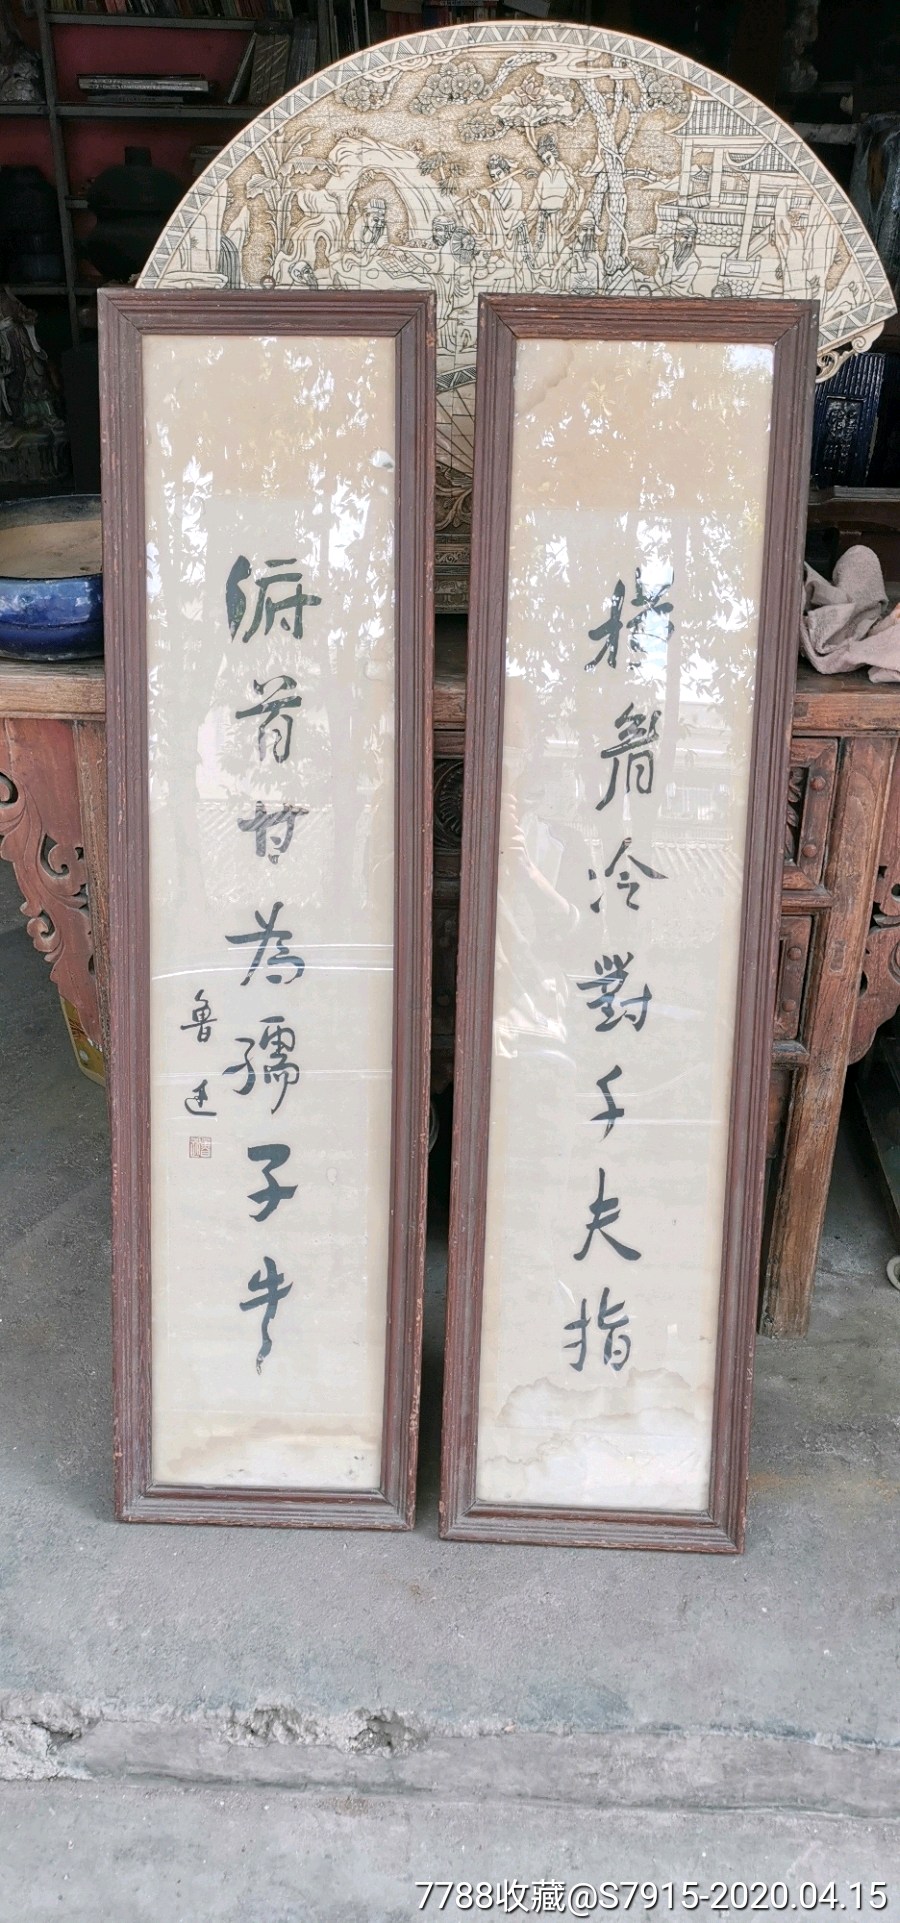 横眉冷對千夫指
俯首甘為孺子牛
魯迅
7788收藏@S7915-2020.04.15